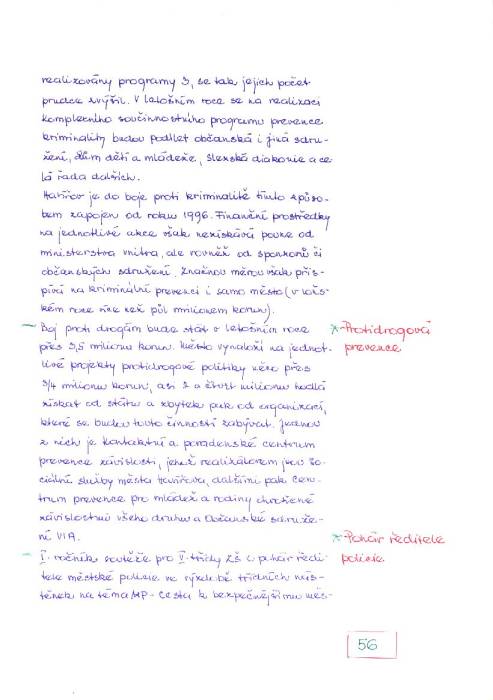 realizovány programy 3, se tak jejich počet
prudce zvýšil. V letošním roce se na realizaci
komplexního součinnostního programu prevence
kriminality budou podílet občanská i jiná sdru-
žení, Dům dětí a mládeže, Slezská diakonie a ce-
lá řada dalších.
Havířov je do boje proti kriminalitě tímto způso-
bem zapojen od roku 1996. Finanční prostředky
na jednotlivé akce však nezískává pouze od
ministerstva vnitra, ale rovněž od sponzorů či
občanských sdružení. Značnou měrou však přis-
pívá na kriminální prevenci i samo město (v loňs-
kém roce více než půl milionem korun).
Boj proti drogám bude stát v letošním roce
přes 3,5 milionu korun. Město vynaloží na jednot-
livé projekty protidrogové politiky něco přes
3/4 milionu korun, asi 2 a čtvrt milionu hodlá
získat od státu a zbytek pak od organizací,
které se budou touto činností zabývat. Jednou
z nich je Kontaktní a poradenské centrum
prevence závislostí, jehož realizátorem jsou So-
ciální služby města Havířova, dalšími pak Cen-
trum prevence pro mládež a rodiny ohrožené
závislostmi všeho druhu a Občanské sdruže-
ní VIA.
I. ročník soutěže pro V. třídy ZŠ o pohár ředi-
tele městské policie ve výzdobě třídních nás-
těnek na téma MP - Cesta k bezpečnějšímu měs-
* Protidrogová
prevence
* Pohár ředitele
policie
56